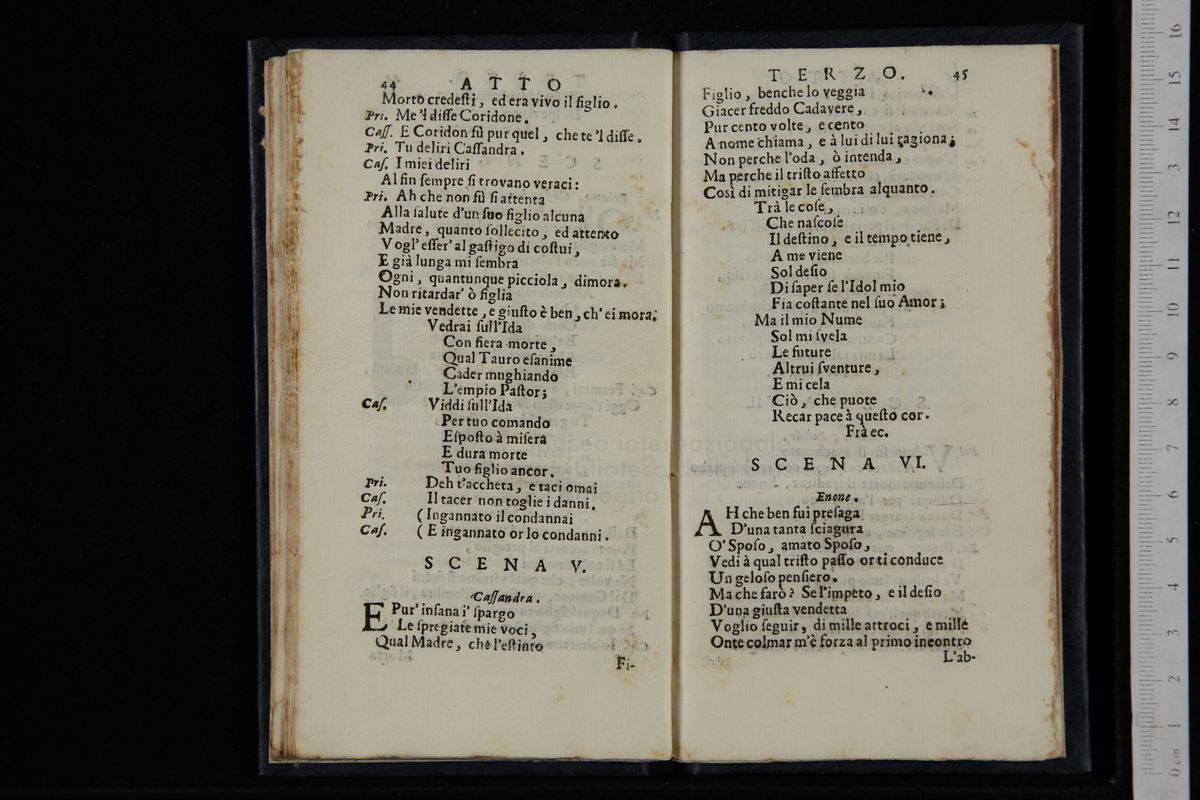 44 ATTO
Morto credeſti, ed era vivo il figlio.
Pri. Me 'l diſſe Coridone.
Caſſ. E Coridon fù pur quel, che te 'l diſſe.
Pri. Tu deliri Caſſandra.
Caſ. I miei deliri
Al fin ſempre ſi trovano veraci:
Pri. Ah che non fù ſi attenta
Alla ſalute d'un ſuo figlio alcuna
Madre, quanto ſollecito, ed attento
Vogl' eſſer' al gaſtigo di coſtui,
E già lunga mi ſembra
Ogni, quantunque picciola, dimora.
Non ritardar' ò figlia
Le mie vendette, e giuſto è ben, ch' ei mora;
Vedrai ſull'Ida
Con fiera morte,
Qual Tauro eſanime
Cader mughiando
L'empio Paſtor;
Caſ. Viddi ſull'Ida
Per tuo comando
Eſpoſto à miſera
E dura morte
Tuo figlio ancor.
Pri. Deh t'accheta, e taci omai
Caſ. Il tacer non toglie i danni.
Pri. (Ingannato il condannai
Caſ. (E ingannato or lo condanni.
SCENA V.
Caſſandra.
E Pur' inſana i' ſpargo
Le ſpregiate mie voci,
Qual Madre, che l'eſtinto
Fi-
TERZO. 45
Figlio, benche lo veggia
Giacer freddo Cadavere,
Pur cento volte, e cento
A nome chiama, e à lui di lui ragiona;
Non perche l'oda, ò intenda,
Ma perche il triſto affetto
Così di mitigar le ſembra alquanto.
Trà le coſe,
Che naſcoſe
Il deſtino, e il tempo tiene,
A me viene
Sol deſio
Di ſaper ſe l'Idol mio
Fia coſtante nel ſuo Amor;
Ma il mio Nume
Sol mi ſvela
Le future
Altrui ſventure,
E mi cela
Ciò, che puote
Recar pace à queſto cor.
Frà ec.
SCENA VI.
Enone.
AH che ben fui preſaga
D'una tanta ſciagura
O' Spoſo, amato Spoſo,
Vedi à qual triſto paſſo or ti conduce
Un geloſo penſiero.
Ma che farò? Se l'impeto, e il deſio
D'una giuſta vendetta
Voglio ſeguir, di mille attroci, e mille
Onte colmar m'è forza al primo incontro
L'ab-